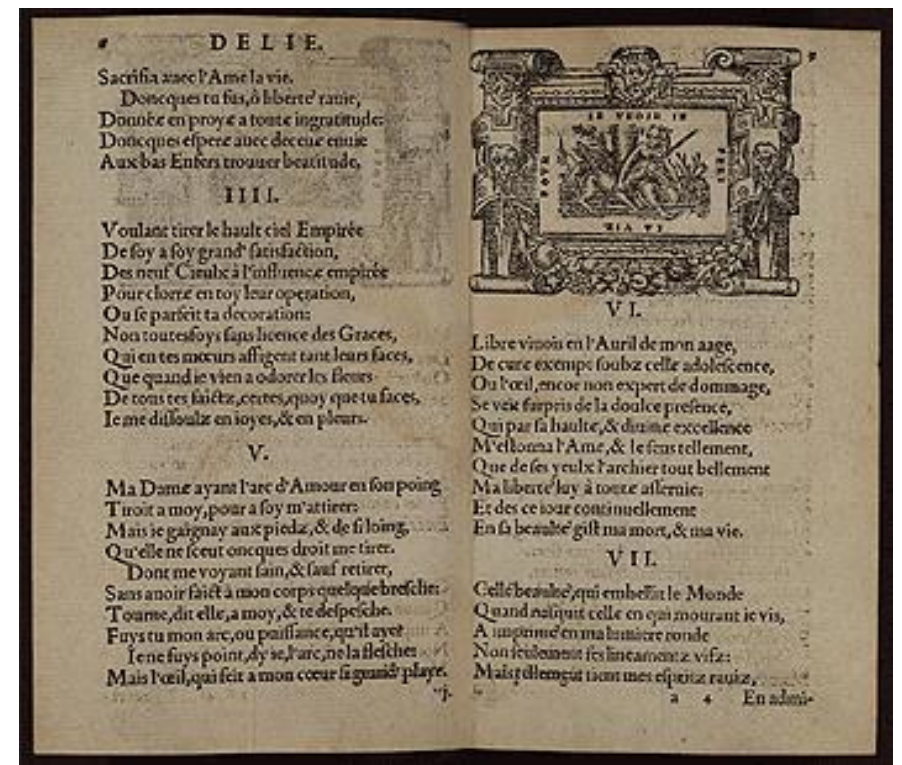 DELIE.
Sacrifia auec l'Ame la vie.
Doncques tu fus, ô liberté rauie,
Donnée en proye a toute ingratitude:
Doncques espere auec deceue enuie
Aux bas Enfers trouuer beatitude.
IIII.
Voulant tirer le hault ciel Empirée
De soy a soy grand' satisfaction,
Des neuf Cieulx à l'influence empirée
Pour clorre en toy leur operation,
Ou se parfeit ta decoration:
Non toutesfoys sans licence des Graces,
Qui en tes mœurs affigent tant leurs faces,
Que quand ie vien a odorer les fleurs
De tous tes faictz, certes, quoy que tu faces,
Ie me dissoulz en ioyes, & en pleurs.
V.
Ma Dame ayant l'arc d'Amour en son poing
Tiroit a moy, pour a soy m'attirer:
Mais ie gaignay aux piedz, & de si loing,
Qu'elle ne sceut oncques droit me tirer.
Dont me voyant sain, & sauf retirer,
Sans auoir faict à mon corps quelque bresche:
Tourne, dit elle, a moy, & te despesche.
Fuys tu mon arc, ou puissance, qu'il aye?
Ie ne fuys point, dy ie, l'arc, ne la flesche:
Mais l'œil, qui feit a mon cœur si grand' playe.
IE VEOIR IE
POUR
PERS
MA VI
VI.
Libre viuois en l'Auril de mon aage,
De cure exempt soubz celle adolescence,
Ou l'œil, encor non expert de dommage,
Se veit surpris de la doulce presence,
Qui par sa haulte, & diuine excellence
M'estonna l'Ame, & le sens tellement,
Que de ses yeulx l'archier tout bellement
Ma liberté luy à toute asseruie:
Et des ce iour continuellement
En sa beaulté gist ma mort, & ma vie.
VII.
Celle beaulté, qui embellit le Monde
Quand nasquit celle en qui mourant ie vis,
A imprimé en ma lumiere ronde
Non seulement ses lineamentz vifz:
Mais tellement tient mes espritz rauiz,
a 4 En admi-